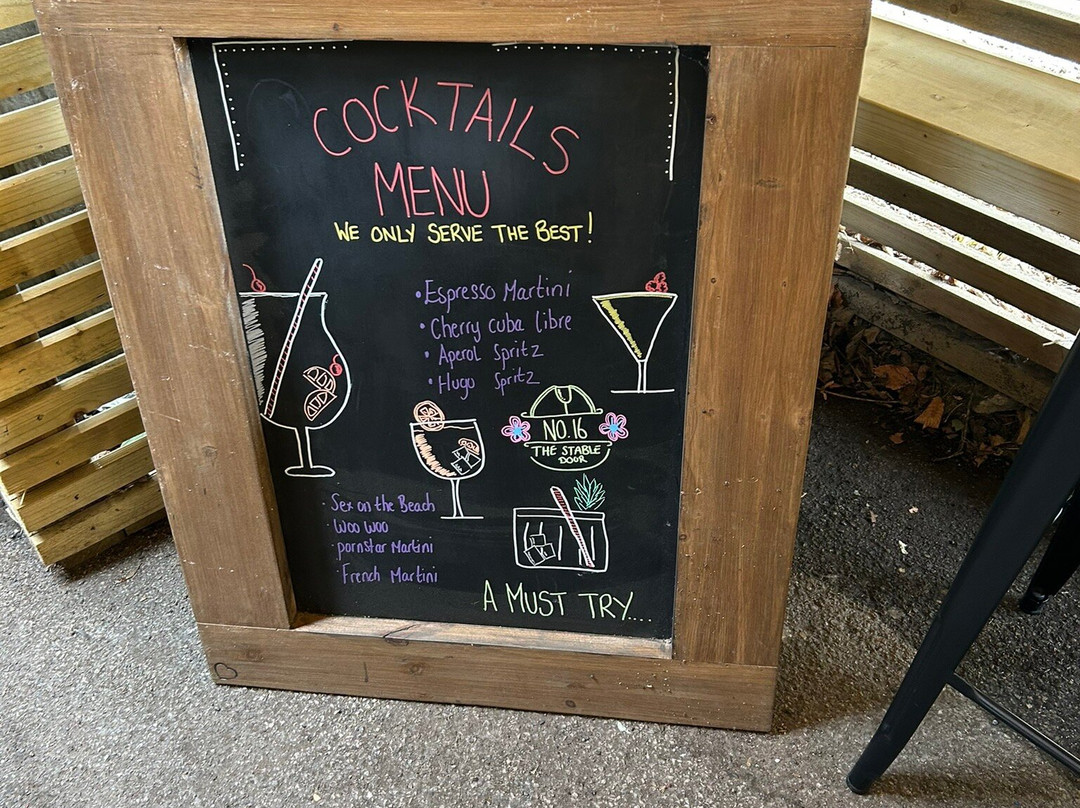 COCKTAILS
MENU
WE ONLY SERVE THE BEST!
• Espresso Martini
• Cherry cuba libre
• Aperol Spritz
• Hugo Spritz
NO.16
THE STABLE
DOOR
· Sex on the Beach
· Woo Woo
· pornstar Martini
· French Martini
A MUST TRY....